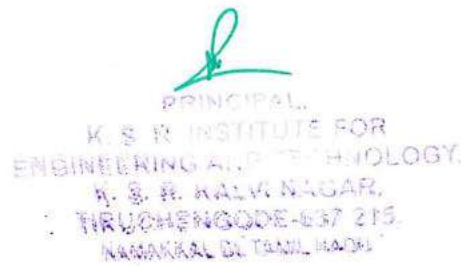 PRINCIPAL,
K. S. R. INSTITUTE FOR
ENGINEERING AND TECHNOLOGY,
K. S. R. KALVI NAGAR,
TIRUCHENGODE-637 215.
NAMAKKAL Dt, TAMIL NADU